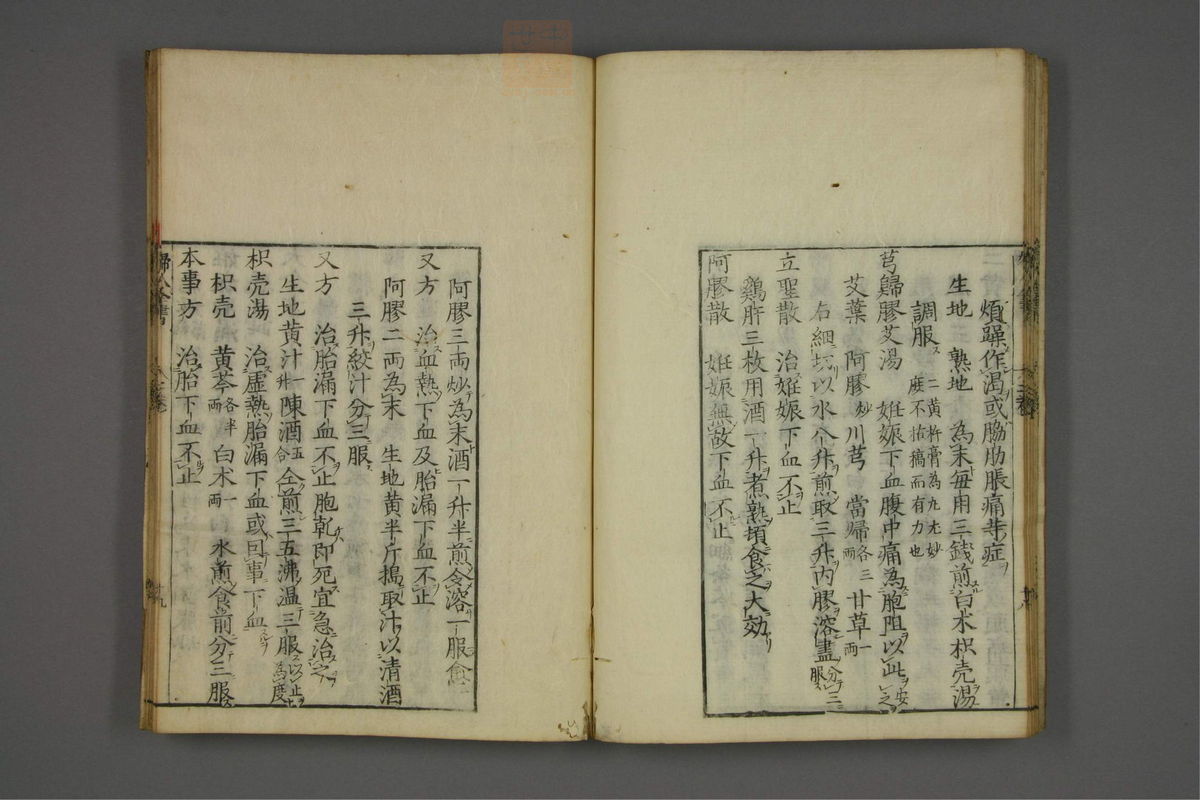 煩躁作渇或脇肋脹痛等症
生地 熟地 為末毎用三錢煎白朮枳壳湯
調服 二黄杵膏為丸尤妙
庶不枯槁而有力也
芎歸膠艾湯 姙娠下血腹中痛為胞阻以此安之
艾葉 阿膠炒 川芎 當帰各三両 甘草一両
右細㕮以水八升煎取三升内膠溶盡分三服
立聖散 治姙娠下血不止
鷄肝三枚用酒一升煮熟頓食之大効
阿膠散 姙娠無故下血不止
阿膠三両炒為末酒一升半煎令溶一服愈
又方 治血熱下血及胎漏下血不止
阿膠二両為末 生地黄半斤搗取汁以清酒
三升絞汁分三服
又方 治胎漏下血不止胞乾即死宜急治之
生地黄汁一升陳酒五合仝煎三五沸温三服以止為度
枳壳湯 治虚熱胎漏下血或因事下血
枳壳 黄芩各半両 白朮一両 水煎食前分三服
本事方 治胎下血不止